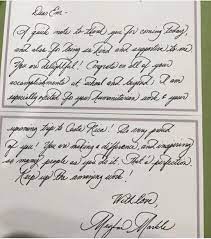 Dear Eve -
A quick note to thank you for coming today,
and also for being so kind and supportive to me.
You are delightful! Congrats on all of your
accomplishments at school and beyond. I am
especially excited for your humanitarian work & your
upcoming trip to Costa Rica! So very proud
of you! You are making a difference, and inspiring
so many people as you do it. That's perfection.
Keep up the amazing work!
With love,
Meghan Markle